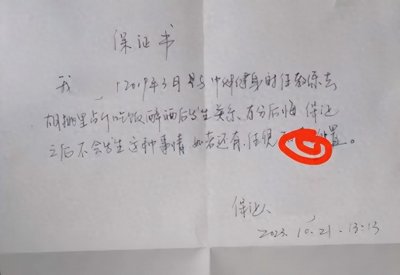 保证书
我 2019年3月 与 健身 时任教练去
吃饭醉酒后发生关系、万分后悔、保证
之后不会发生这种事情 如若还有,任凭 处置。
保证人
2023.10.21.13:13